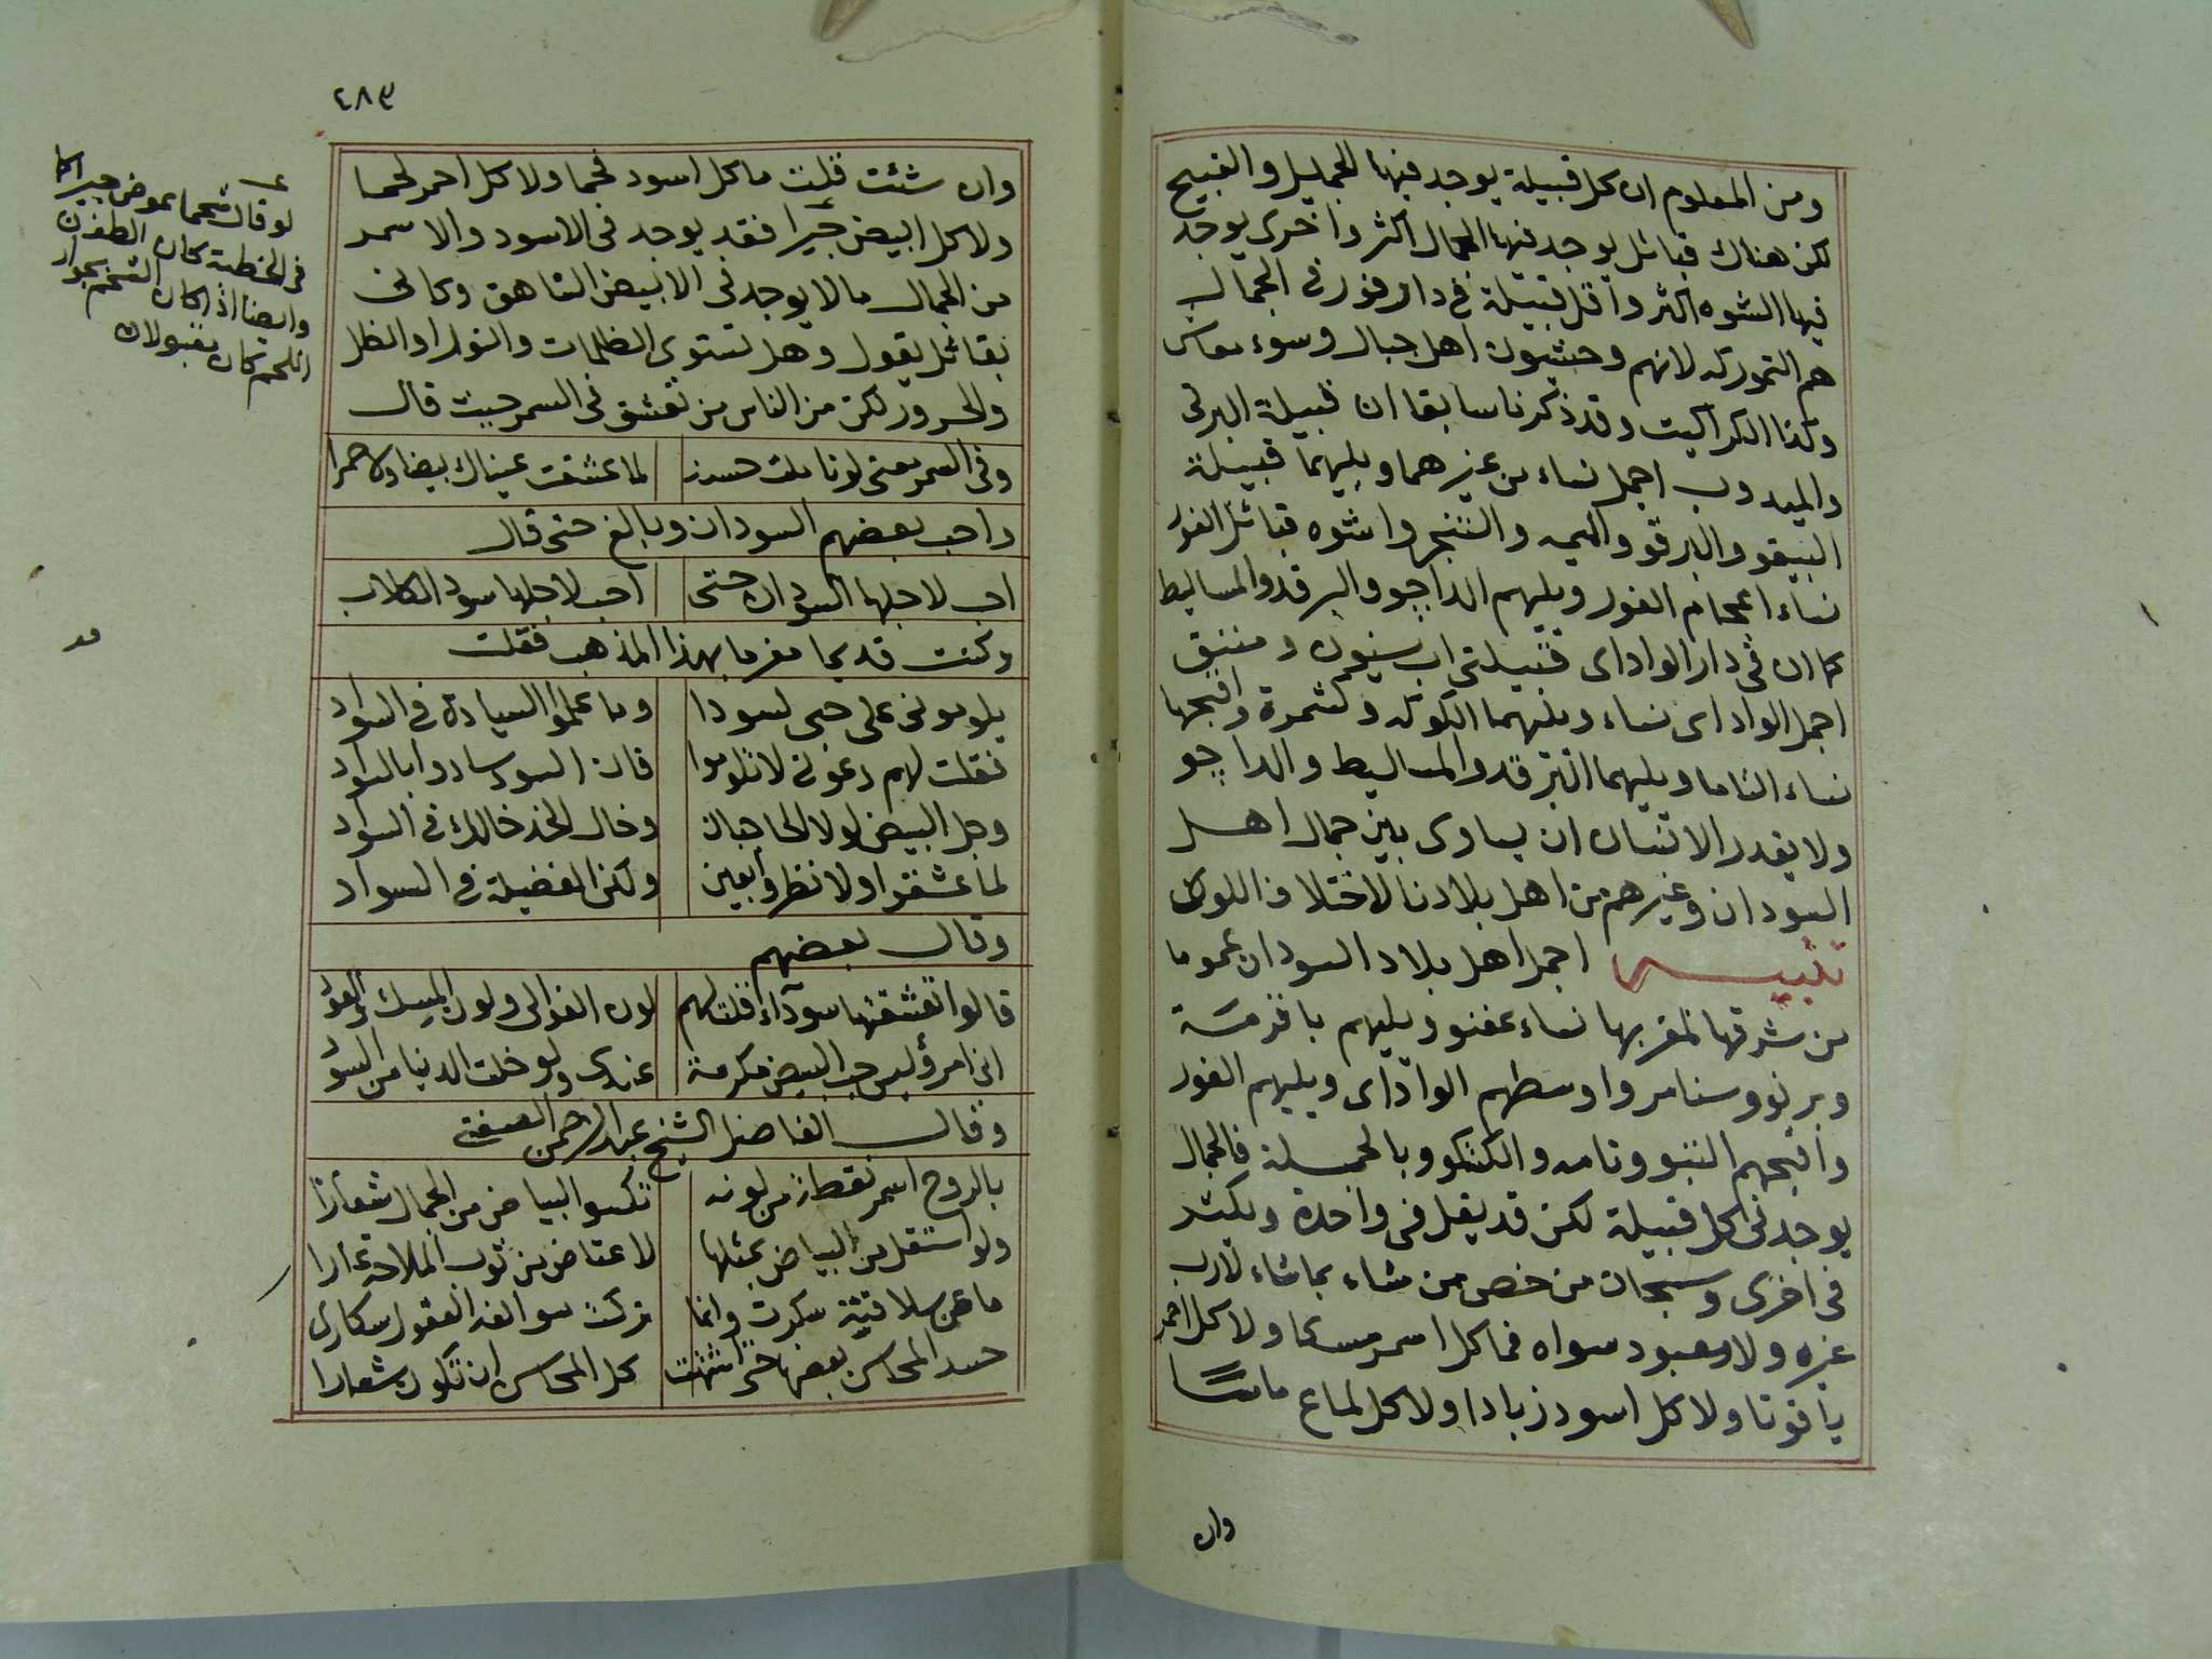 ومن المعلوم ان كل قبيلة يوجد فيها الجميل والقبيح
لكن هناك قبائل يوجد فيها الجمال اكثر واخرى يوجد
فيها الشوه اكثر واقل قبيلة فى دارفور فى الجمال
هم التموركه لانهم وحشيون اهل جبال وسوء معاش
وكذا الكراكيت وقد ذكرنا سابقا ان قبيلة البرتى
والميدوب اجمل نساء من غيرهما ويليهما قبيلة
البيقو والبرقو والميمه والتنجر واشوه قبائل الفور
نساء اعجام الفور ويليهم الداجو والبرقد والمساليط
كما ان فى دار الواداى قبيلتى اب سنون ومننق
اجمل الواداى نساء ويليهما الكوكه وكشمرة واقبحها
نساء التاما ويليهما البرقد والمساليط والداجو
ولا يقدر الانسان ان يساوى بين جمال اهل
السودان وغيرهم من اهل بلادنا لاختلاف اللون
تنبيه اجمل اهل بلاد السودان عموما
من شرقها لمغربها نساء عفنو ويليهم باقرمة
وبرنو وسنار واوسطهم الواداى ويليهم الفور
واقبحهم التبو وتامه والكتكو وبالجملة فالجمال
يوجد فى كل قبيلة لكن قد يقل فى واحدة ويكثر
فى اخرى وسبحان من خص من شاء بما شاء لا رب
غيره ولا معبود سواه فما كل اسمر مسكا ولا كل احمر
ياقوتا ولا كل اسود زبادا ولا كل لماع ماسا
وان
٤٨٣
وان شئت قلت ما كل اسود فحما ولا كل احمر لحما
ولا كل ابيض جيرا فقد يوجد فى الاسود والاسمر
من الجمال مالا يوجد فى الابيض الشاهق وكانى
بقائل يقول وهل تستوى الظلمات والنور او الظل
والحرور لكن من الناس من تعشق فى السمر حيث قال
وفى السمر معنى لو تاملت حسنه لما عشقت عيناك بيضا ولا حمرا
واحب بعضهم السودان وبالغ حتى قال
احب لاجلها السودان حتى احب لاجلها سود الكلاب
وكنت قديما مغرما بهذا المذهب فقلت
يلومونى على حبى لسودا وما علموا السيادة فى السواد
فقلت لهم دعونى لا تلوموا فان السود سادوا بالسواد
وجل البيض لولا الحاجبان وخال الخد خالك فى السواد
لما عشقوا ولا نظروا بعين ولكن الفضيلة فى السواد
وقال بعضهم
قالوا تعشقتها سوداء قلت لهم لون الغوالى ولون المسك والعود
انى امرؤ ليس حب البيض مكرمة عندى ولو خلت الدنيا من السود
وقال الفاضل الشيخ عبد الرحمن الصفتى
بالروح اسمر نقطة من لونه تكسو البياض من الجمال شعارا
ولو استقل من البياض بمثلها لاعتاض من ثوب الملاحة عارا
ما من سلافتيه سكرت وانما تركت سوالفه العقول سكارى
حسد المحاسن بعضها حتى اشتهت كل المحاسن ان تكون شعارا
لو قال شحما عوض جيرا كما
فى الخطبة كان الطف لان
وايضا اذا كان الشحم بجوار
اللحم كان مقبولا